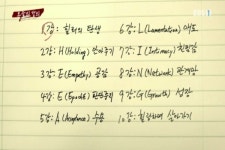 1강: 힐러의 탄생
2강: H(Holding) 안아주기
3강: E(Empathy) 공감
4강: E(Episode)
5강: A(Acceptance) 수용
6강: L(Lamentation) 애도
7강: I(Intimacy) 친밀감
8강: N(Network) 관계망
9강: G(Growth) 성장
10강: 힐링하며 살아가기